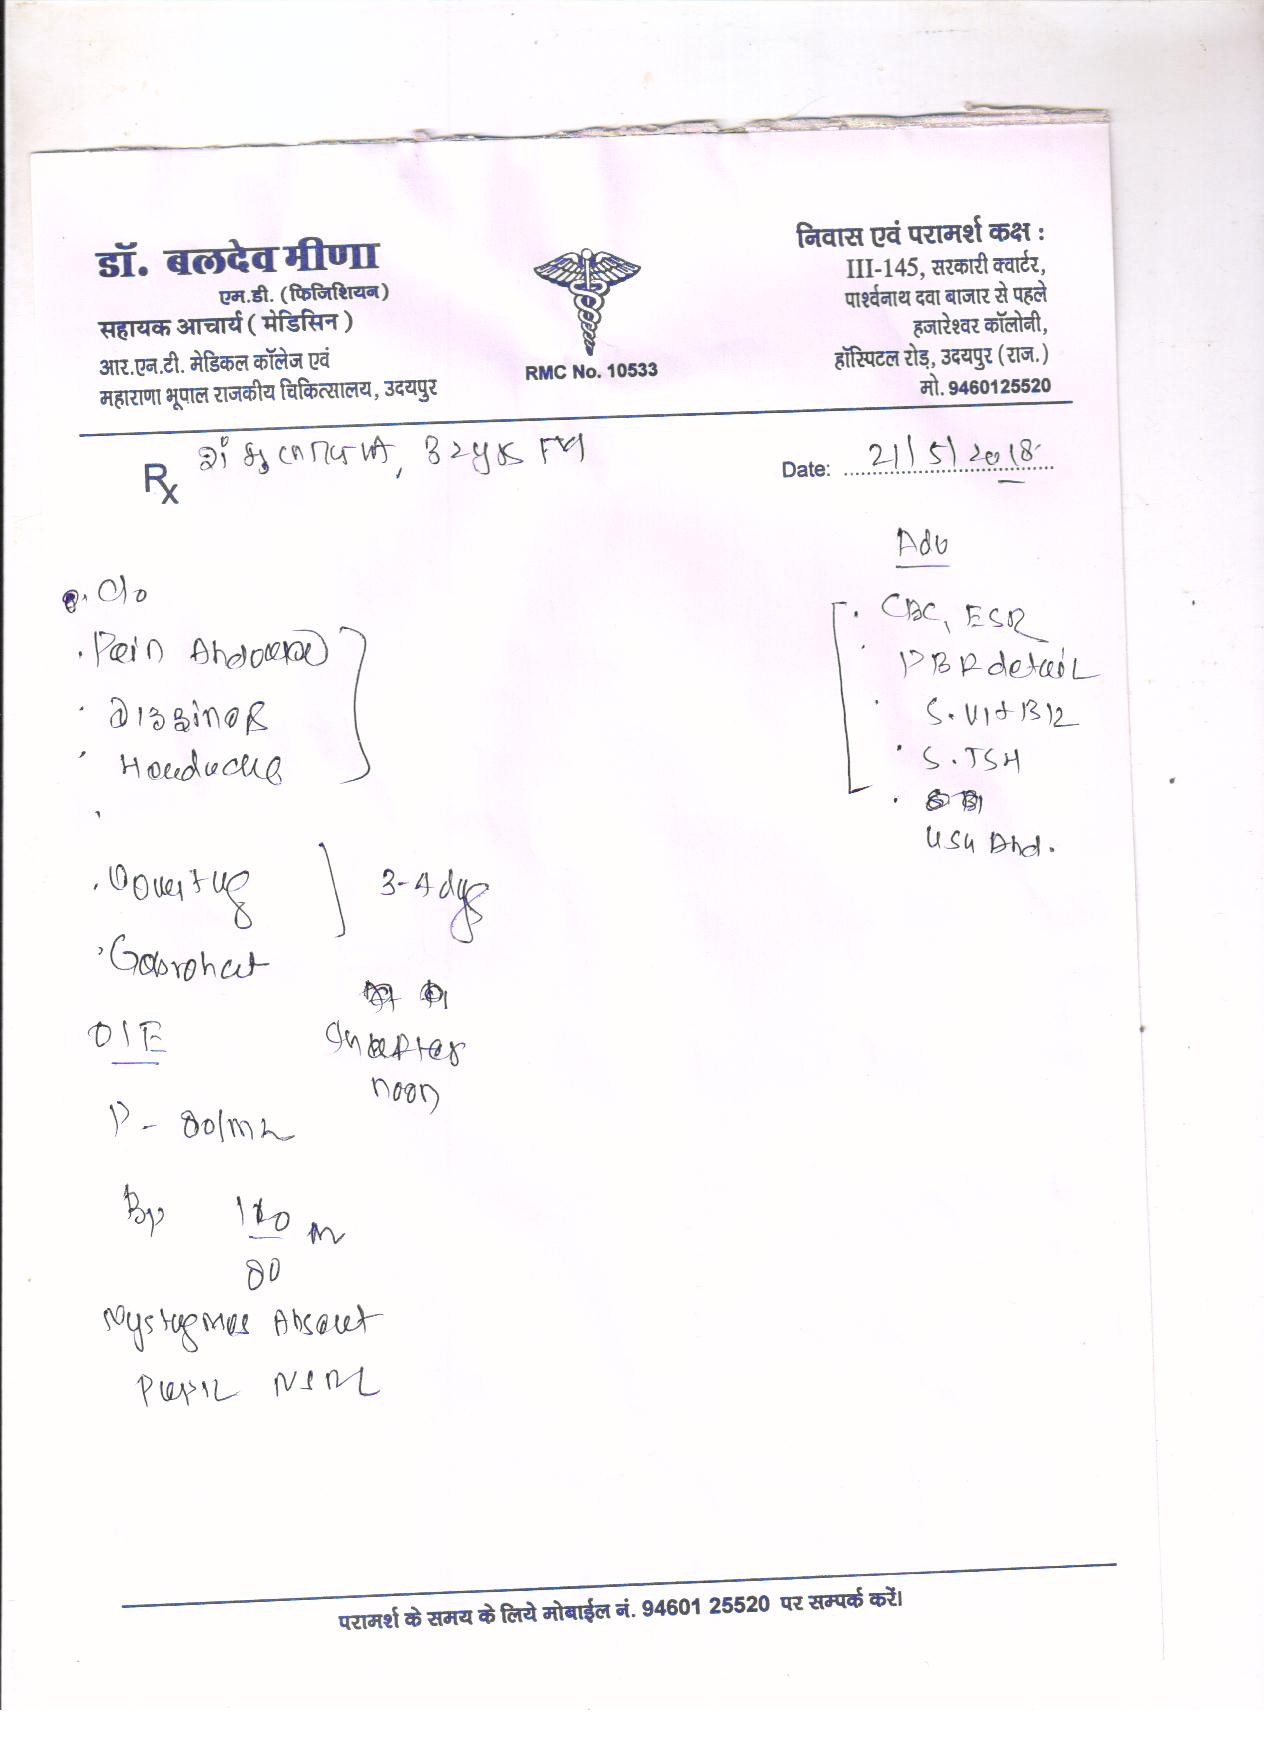 डॉ. बलदेव मीणा
एम.डी. (फिजिशियन)
सहायक आचार्य ( मेडिसिन )
आर.एन.टी. मेडिकल कॉलेज एवं
महाराणा भूपाल राजकीय चिकित्सालय, उदयपुर
RMC No. 10533
निवास एवं परामर्श कक्ष :
III-145, सरकारी क्वार्टर,
पार्श्वनाथ दवा बाजार से पहले
हजारेश्वर कॉलोनी,
हॉस्पिटल रोड़, उदयपुर (राज.)
मो. 9460125520
Rx
Date: 21/5/2018
C/o
Pain Abdomen
Dizziness
Headache
Vomiting 3-4 days
Gabrohat
In after
noon
O/E
P - 80/m
Bp 110
80
Nystagmus Absent
Pupil NSRL
Adv
CBC, ESR
PBF detail
S. Vit B12
S. TSH
USG Abd.
परामर्श के समय के लिये मोबाईल नं. 94601 25520 पर सम्पर्क करें।